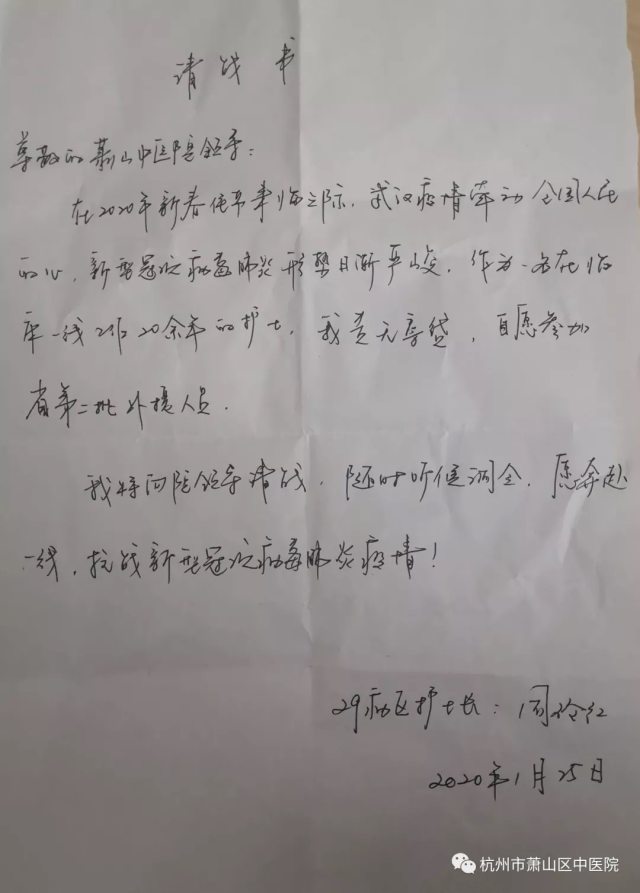 请战书
尊敬的萧山中医院领导：
在2020年新春佳节来临之际，武汉疫情牵动全国人民
的心，新型冠状病毒肺炎形势日渐严峻，作为一名在临
床一线工作20余年的护士，我责无旁贷，自愿参加
省第二批外援人员.
我特向院领导请战，随时听候调令，愿奔赴
一线，抗战新型冠状病毒肺炎疫情！
29病区护士长：周玲红
2020年1月25日
杭州市萧山区中医院